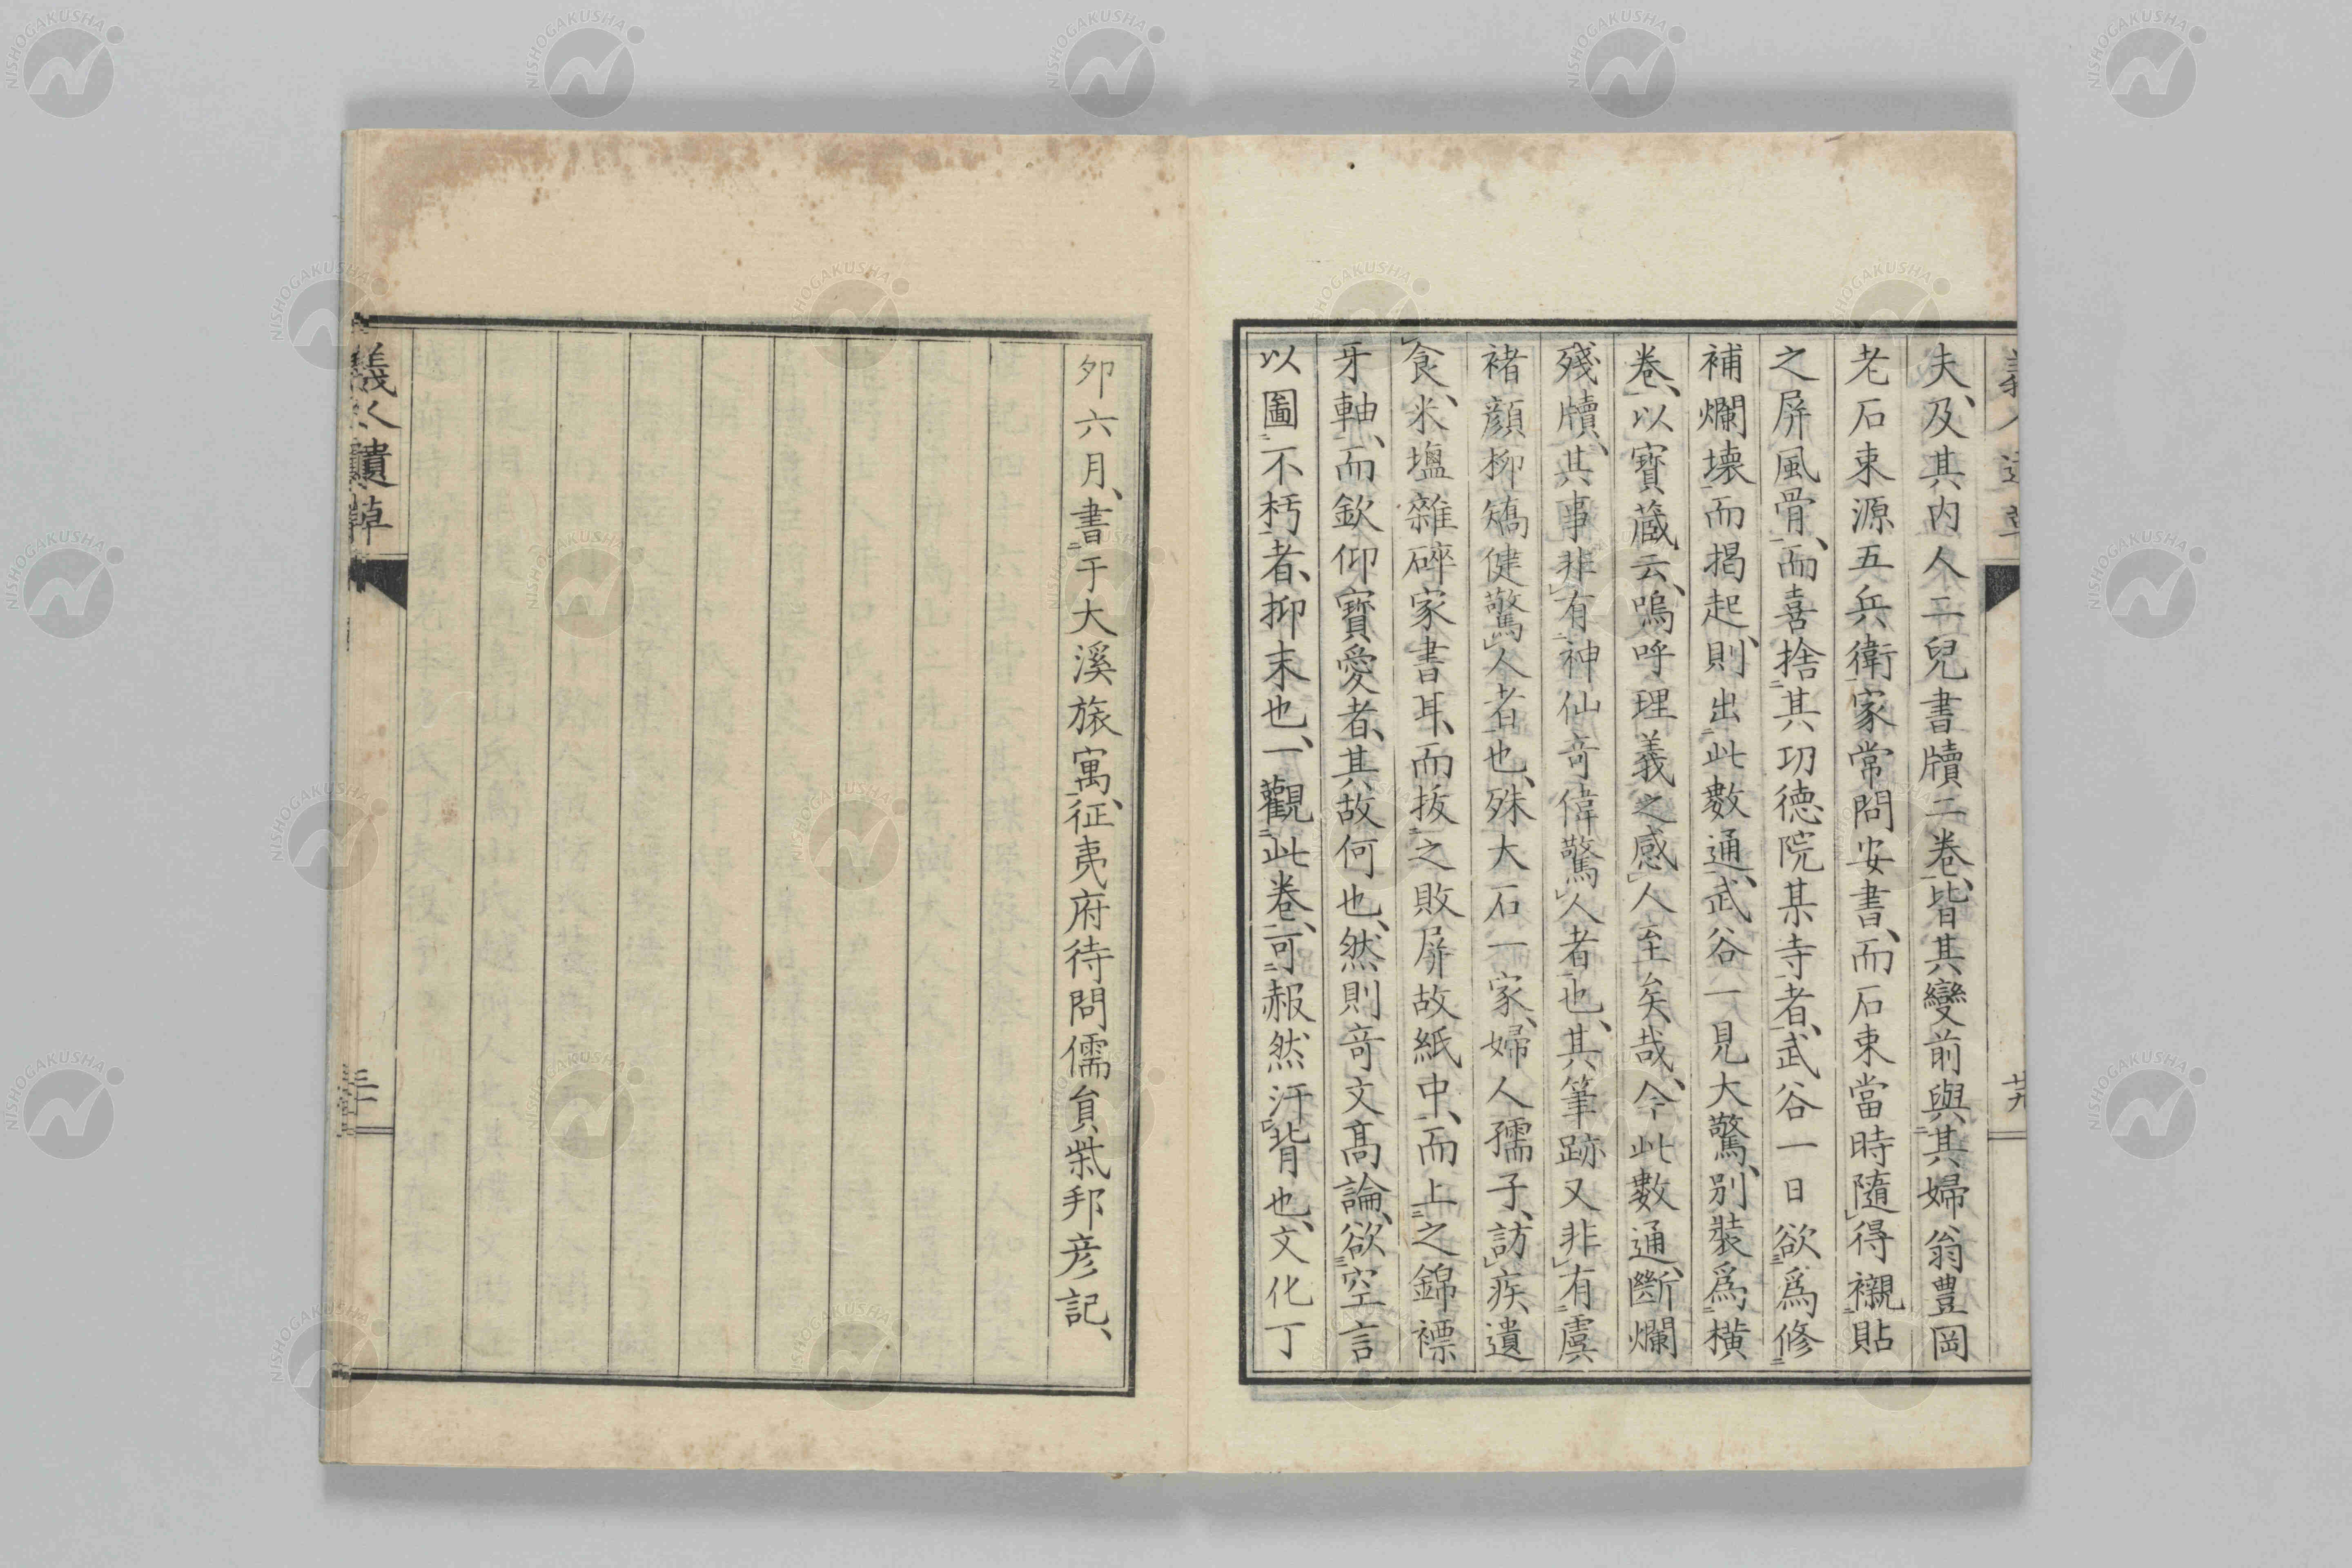 夫、及其内人二兒書牘二卷、皆其變前與其婦翁豊岡
老石束源五兵衛家常問安書、而石束當時隨得襯貼
之屏風骨、而喜捨其功德院某寺者、武谷一日欲爲修
補爛壊而揭起、則出此數通、武谷一見大驚、別裝爲橫
卷、以寳藏云、嗚呼理義之感人至矣哉、今此數通、斷爛
殘牘、其事非有神仙竒偉驚人者也、其筆跡又非有虞
褚顔柳矯健驚人者也、殊大石一家、婦人孺子、訪疾遺
食、米塩雜碎家書耳、而拔之敗屏故紙中、而上之錦褾
牙軸、而欽仰寳愛者、其故何也、然則竒文高論、欲空言
以圖不朽者、抑末也、一觀此卷、可赧然汗背也、文化丁
夘六月、書于大溪旅寓、征夷府待問儒員柴邦彦記、
義人遺草
三十
義人遺草
廿九
NISHOGAKUSHA